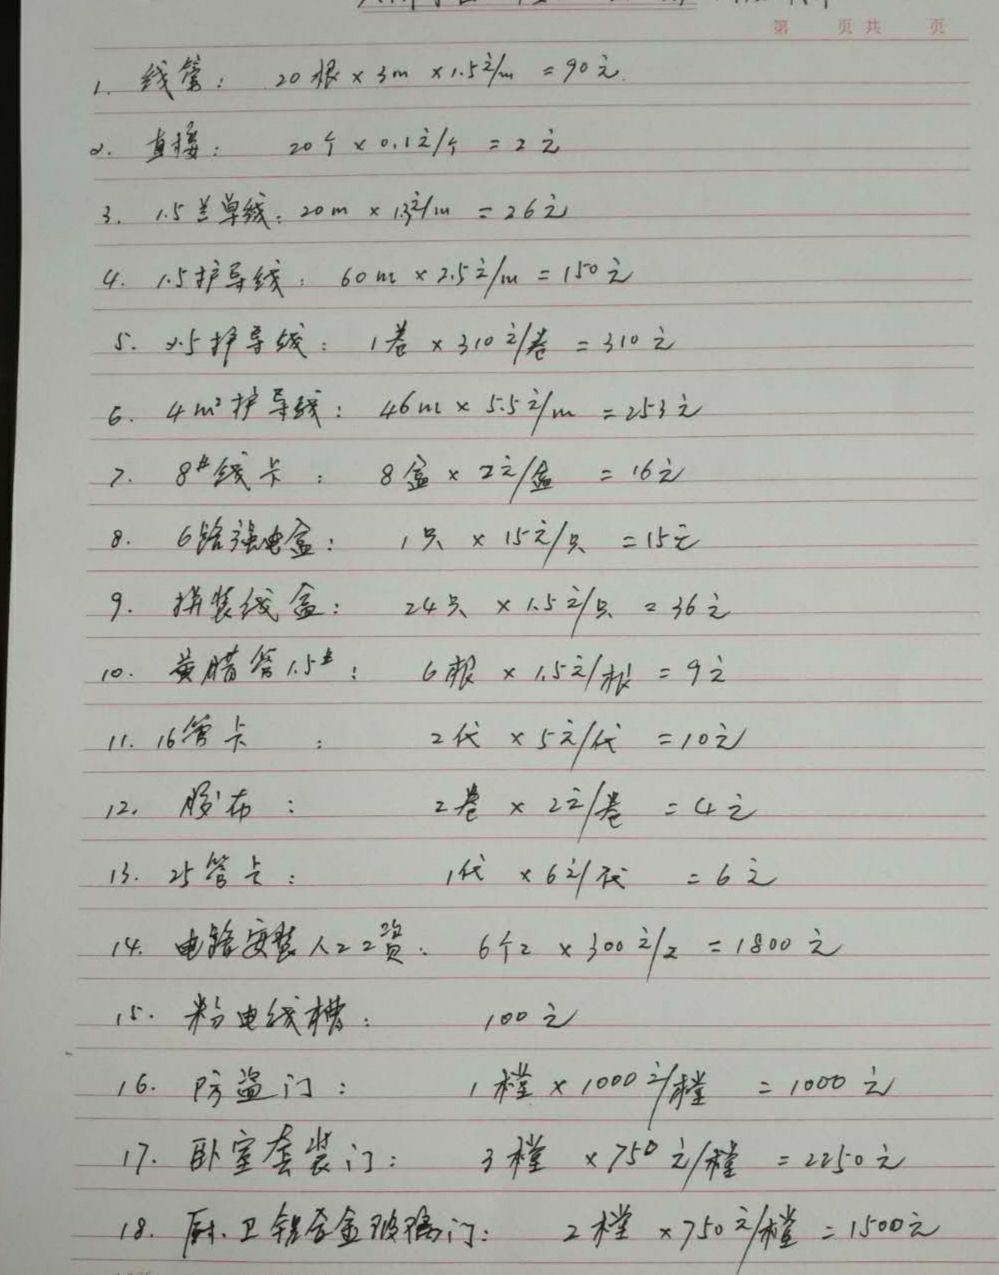 第 页 共 页
1. 线管: 20根×3m×1.5元/m=90元.
2. 直接: 20个×0.1元/个=2元
3. 1.5兰单线: 20m×1.3元/m=26元
4. 1.5护导线: 60m×2.5元/m=150元
5. 2.5护导线: 1卷×310元/卷=310元
6. 4m²护导线: 46m×5.5元/m=253元
7. 8#线卡: 8盒×2元/盒=16元
8. 6路强电盒: 1只×15元/只=15元
9. 拼装线盒: 24只×1.5元/只=36元
10. 黄腊管1.5#: 6根×1.5元/根=9元
11. 16管卡: 2代×5元/代=10元
12. 胶布: 2卷×2元/卷=4元
13. 25管卡: 1代×6元/代=6元
14. 电路安装人工工资: 6个工×300元/工=1800元
15. 粉电线槽: 100元
16. 防盗门: 1樘×1000元/樘=1000元
17. 卧室套装门: 3樘×750元/樘=2250元
18. 厨.卫铝合金玻璃门: 2樘×750元/樘=1500元